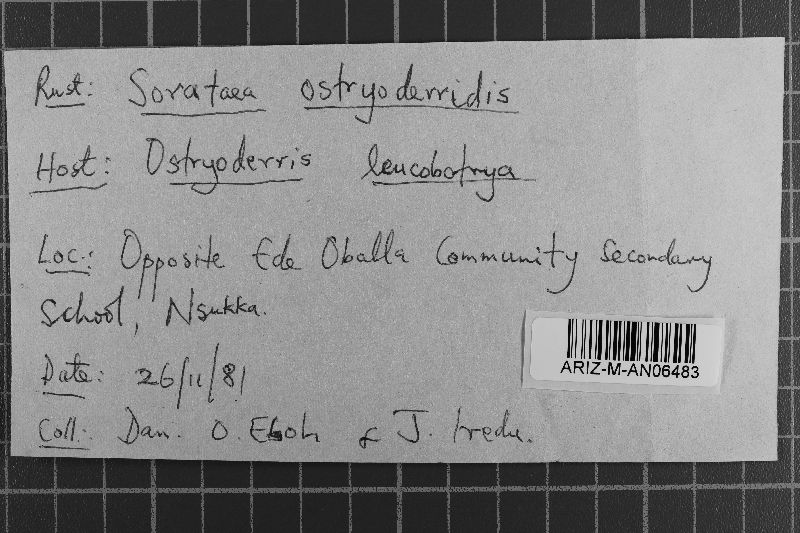 Rust: Sorataea ostryoderridis
Host: Ostryoderris leucobotrya
Loc.: Opposite Ede Oballa Community Secondary
School, Nsukka.
ARIZ-M-AN06483
Date: 26/11/81
Coll: Dan. O. Eboh & J. Iredu.